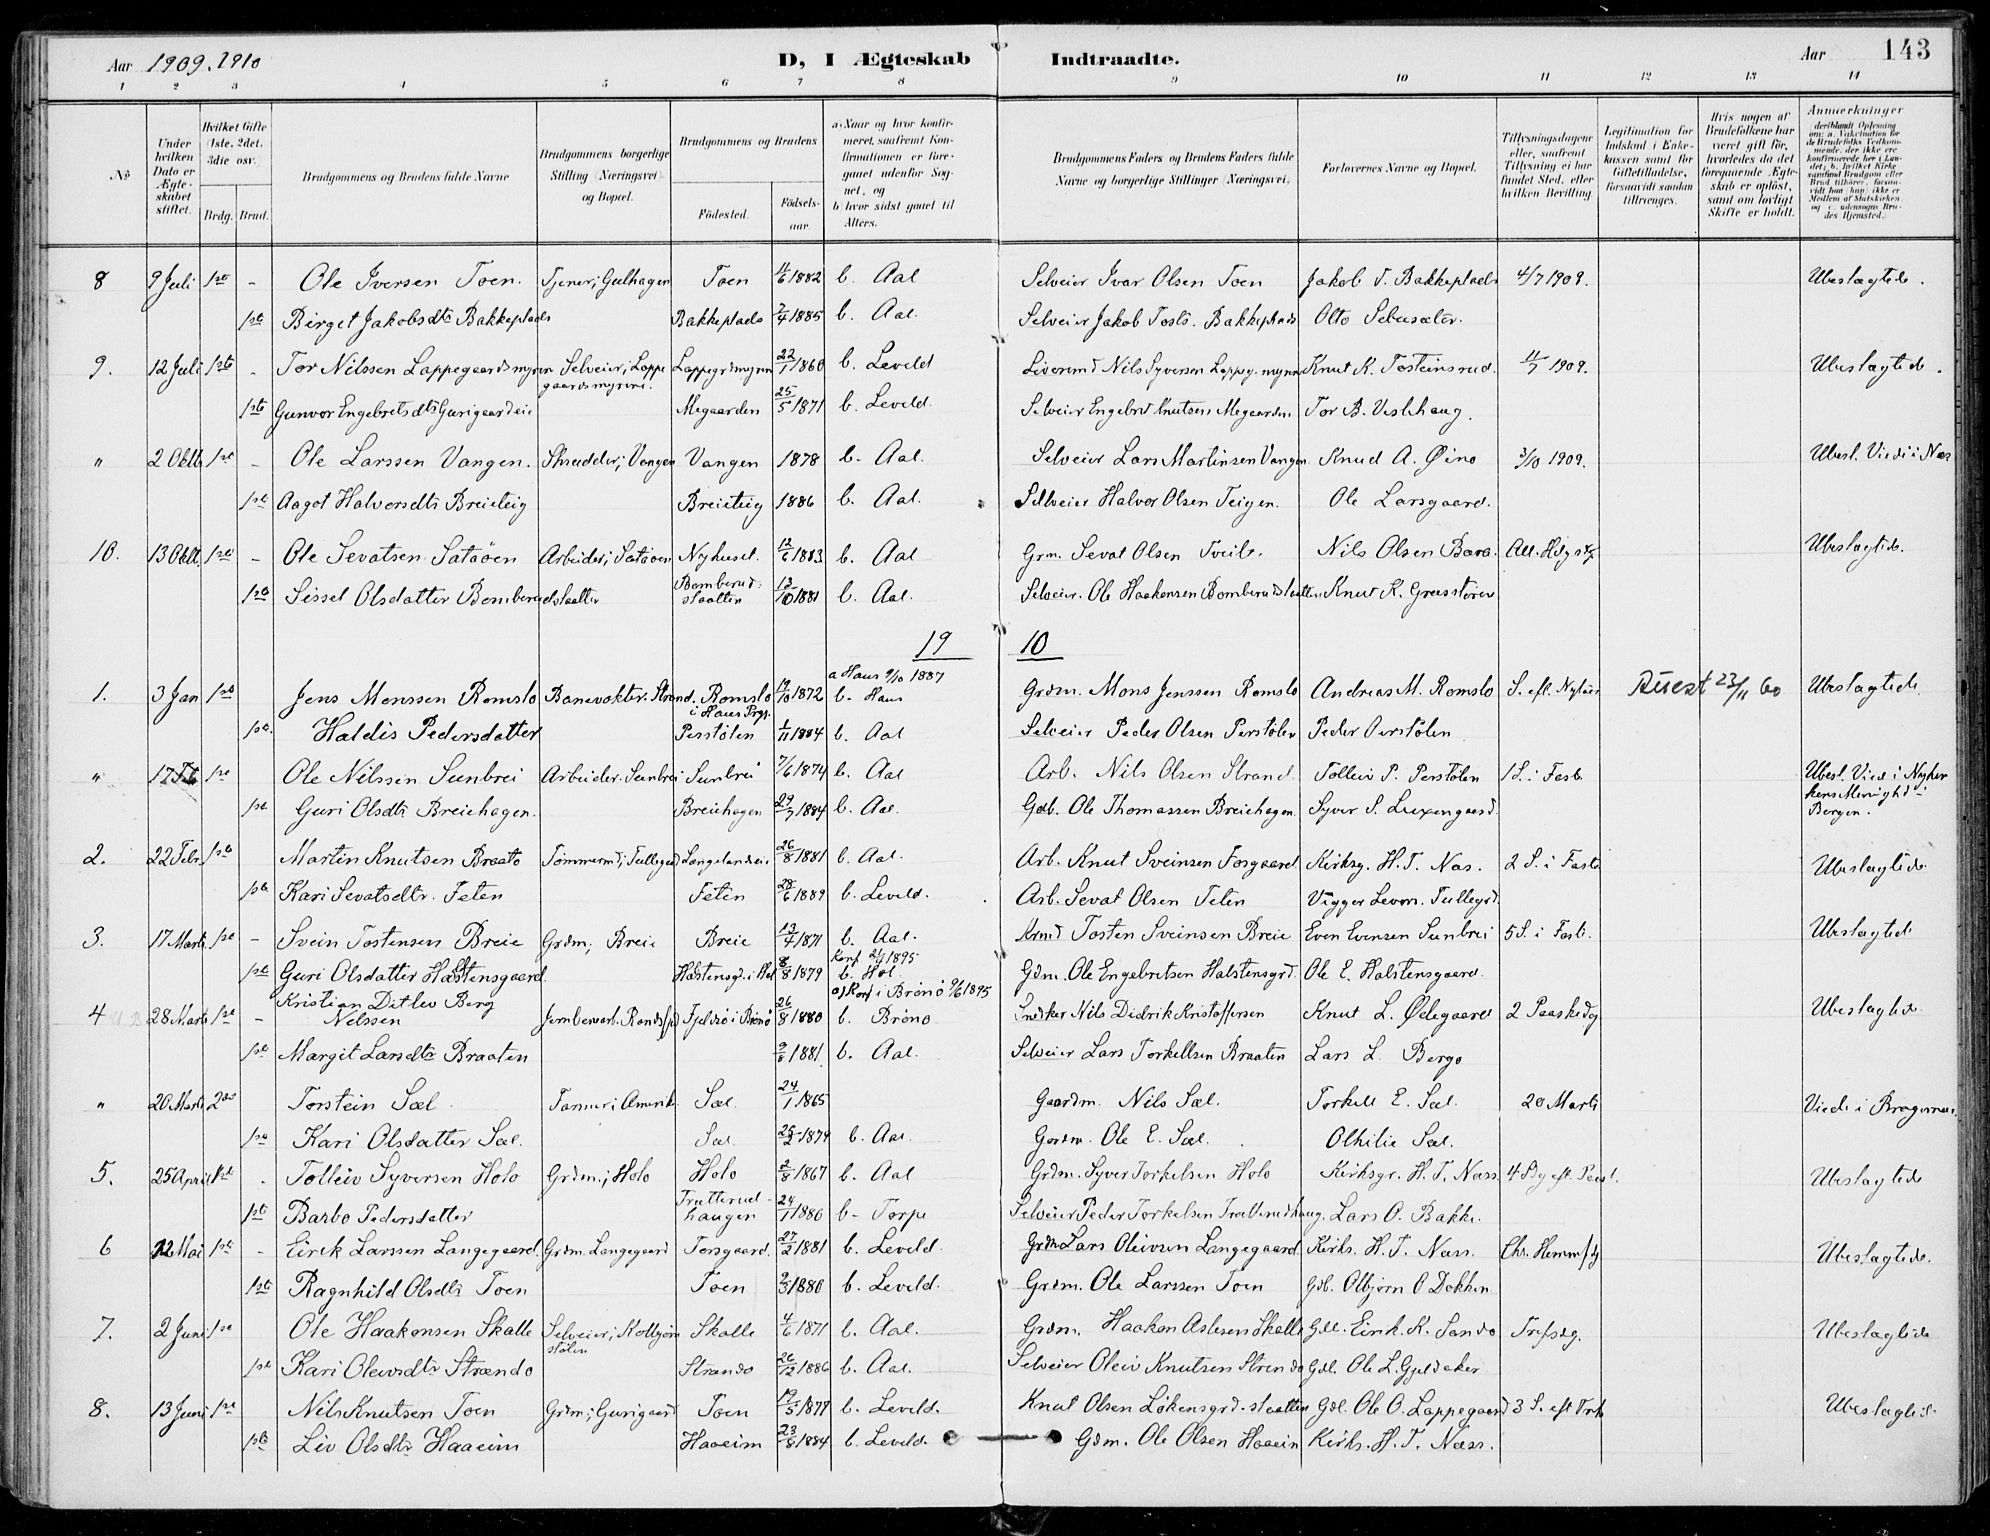 Aar 1909.1910 D, I Ægteskab Indtraadte. Aar 143
1 2 3 4 5 6 7 8 9 10 11 12 13 14
No
Under hvilken Dato er Ægteskabet stiftet.
Hvilket Gifte (1ste. 2det. 3die osv.
Brdg. Brud.
Brudgommens og Brudens fulde Navne
Brudgommens borgerlige Stilling (Næringsvei) og Bopæl.
Brudgommens og Brudens
Födested. Födselsaar.
a) Naar og hvor konfirmeret, saafremt Konfirmationen er foregaaet udenfor Sognet, og
b) hvor sidst gaaet til Alters.
Brudgommens Faders og Brudens Faders fulde Navne og borgerlige Stillinger (Næringsvei)
Forlovernes Navne og Bopæl.
Tillysningsdagene eller, saafremt Tillysning ei har fundet Sted, efter hvilken Bevilling.
Legitimation for Indskud i Enkekassen samt for Giftetilladelse, forsaavidt saadan tiltrænges.
Hvis nogen af Brudefolkene har været gift för, hvorledes da det foregaaende Ægteskab er oplöst, samt om lovligt Skifte er holdt.
Anmærkninger
8 9 Juli 1ste - Ole Iversen Toen. Tjener; Gulhagen Toen 11/6 1882 b. Aal Selveier Ivar Olsen Toen Jakob T. Bakkeplads 4/7 1909. Ubeslægtede.
1ste Birget Jakobsdtr Bakkeplads Bakkeplads 2/4 1885 b. Aal. Selveier Jakob Tosts. Bakkeplads Otto Sebusæter.
9. 12 Juli 1ste - Tor Nilssen Lappegaardsmyren Selveier; Lappegaardsmyren. Lappegrdmyren 22/1 1860 b. Leveld Nils Syversen Lappg. myren Knut K. Tosteinsrud. 11/7 1909. Ubeslægtede.
1ste Gunvor Engebretsdtr Gurigaardeie Megaarden 25/5 1871 b. Leveld. Selveier Engebret Knutsen Megaarden Tor B. Veslehaug.
" 2 Oktb 1ste - Ole Larssen Vangen. Skrædder; Vangen Vangen 1878 b. Aal. Selveier Lars Martinsen Vangen Knud A. Øino 3/10 1909. Ubesl. Viede i Næs
1ste Aagot Halvorsdtr Breieteig Breieteig 1886 b. Aal. Selveier Halvor Olsen Teigen. Ole Larsgaard.
10. 13 Okt. 1ste - Ole Sevatsen Sataøen Arbeider; Sataøen Nyhuset. 12/6 1883 b. Aal Grm. Sevat Olsen Tveito. Nils Olsen Bara. All. Helgsdg Ubeslægtede.
1ste Sissel Olsdatter Bomberudslaatten Bomberudslaatten 13/10 1881 b. Aal. Selveier. Ole Haakensen Bomberudslaatten Knut K. Græsstøren
19 10
1. 3 Jan 1ste Jens Monssen Romslo Banevokter. Strand. Romslo i Haus Prgj. 19/10 1872 a Haus 9/10 1887 b. Haus Grdm. Mons Jenssen Romslo Andreas M. Romslo S. eft. Nytaar 23/11 60 Ubeslægtede.
1ste. Haldis Pedersdatter Perstølen 1/11 1884 b. Aal Selveier Peder Olsen Perstølen Peder Perstølen
" 17 Feb 1ste Ole Nilssen Sunbrei Arbeider. Sunbrei Sunbrei 7/6 1874 b. Aal Arb. Nils Olsen Strand. Tolleiv P. Perstølen 1 S. i Faste Ubesl. Viede i Nykirkens Menighd i Bergen.
1ste Guri Olsdtr Breiehagen. Breiehagen 29/7 1884 b. Aal. Gdb. Ole Thomassen Breiehagen. Syver S. Luxengaard
2. 22 Febr. 1ste Martin Knutsen Braato Tømmermd; Tullegrd Langelandseie 26/8 1881 b. Aal. Arb. Knut Sveinsen Torsgaard Kirksg. H. T. Næs. 2 S. i Faste Ubeslægtede.
1ste Kari Sevatsdtr. Teten Teten 28/6 1889 b. Leveld. Arb. Sevat Olsen Teten Vigger Levor. Tullegrd.
3. 17 Marts 1ste - Svein Tostensen Breie Grdm; Breie Breie 13/4 1871 b. Aal. Krmd Tosten Sveinsen Breie Even Evensen Sunbrei 5 S. i Faste. Ubeslægtede
1ste Guri Olsdatter Hallstensgaard. Halstensgd. i Hol 8/8 1879 Konf 1895 b. Hol. Gdm. Ole Engebretsen Halstensgrd. Ole E. Halstensgaard.
4 28 Marts 1ste - Kristian Ditlev Berg Nilssen Jernbanearb. Randsfjd Fjeldsø i Brønø 26/8 1880 a) Konf i Brønø 9/6 1895 b. Brønø Snedker Nils Didrik Kristoffersen Knut L. Ødegaard 2 Paaskedg Ubeslægtede.
1ste Margit Larsdtr Braaten 9/6 1881. b. Aal. Selveier Lars Torkellsen Braaten Lars L. Bergo
" 20 Marts 2den Torstein Sæl Farmer i Amerik. Sæl. 24/1 1865 Gaardm. Nils Sæl. Torkell E. Sæl. 20 Marts Viede i Bragernes.
1ste Kari Olsdatter Sæl. Sæl. 25/2 1874 b. Aal. Gaardm. Ole E. Sæl. Othilie Sæl.
5. 25 April 1ste - Tolleiv Syversen Holo Grdm.; Holo Holo 2/8 1867 b. Aal Grdm. Syver Torkelsen Holo Kirksgr. H. T. Næss 4 Sdg eft. Paask. Ubeslægtede
1ste Barbo Pedersdatter Trætterudhaugen 24/1 1880 b - Torpe Selveier Peder Torkelsen Trætterudhaug. Lars O. Bakke.
6 12 Mai 1ste - Eirek Larssen Langegaard. Grdm. Langegaard Torsgaard. 27/2 1881 b. Leveld. Grdm Lars Oleivsen Langegaard. Kirks. H. T. Næss. Chr. Hemmfdg Ubeslægtede.
1ste Ragnhild Olsdtr Toen Toen 9/3 1880 b. Leveld. Grdm. Ole Larssen Toen Gdb. Olbjørn O Dokken
7. 2 Juni 1ste Ole Haakensen Skalle Selveier; Kolbjørnstølen Skalle 4/6 1871 b. Aal. Grdm. Haaken Aslesen Skalle Gdb. Eirik K. Sando Trefsdg. Ubeslægtede
1ste Kari Oleivsdtr Strændo Strando 26/12 1886 b. Aal. Selveier Oleiv Knutsen Strendo Gdb. Ole L. Gjeldaker
8. 13 Juni 1ste Nils Knutsen Toen Grdm; Gurigaard Toen 19/5 1877 b. Leveld. Knut Olsen Løkensgrd. slaatten Gdb. Ole O. Lappegaard 3 S. eft Tref Ubeslægtede
1ste Liv Olsdtr Haaeim Haaeim 23/8 1884 b. Leveld. Gdm. Ole Olsen Haaeim Kirks. H. T. Næss.